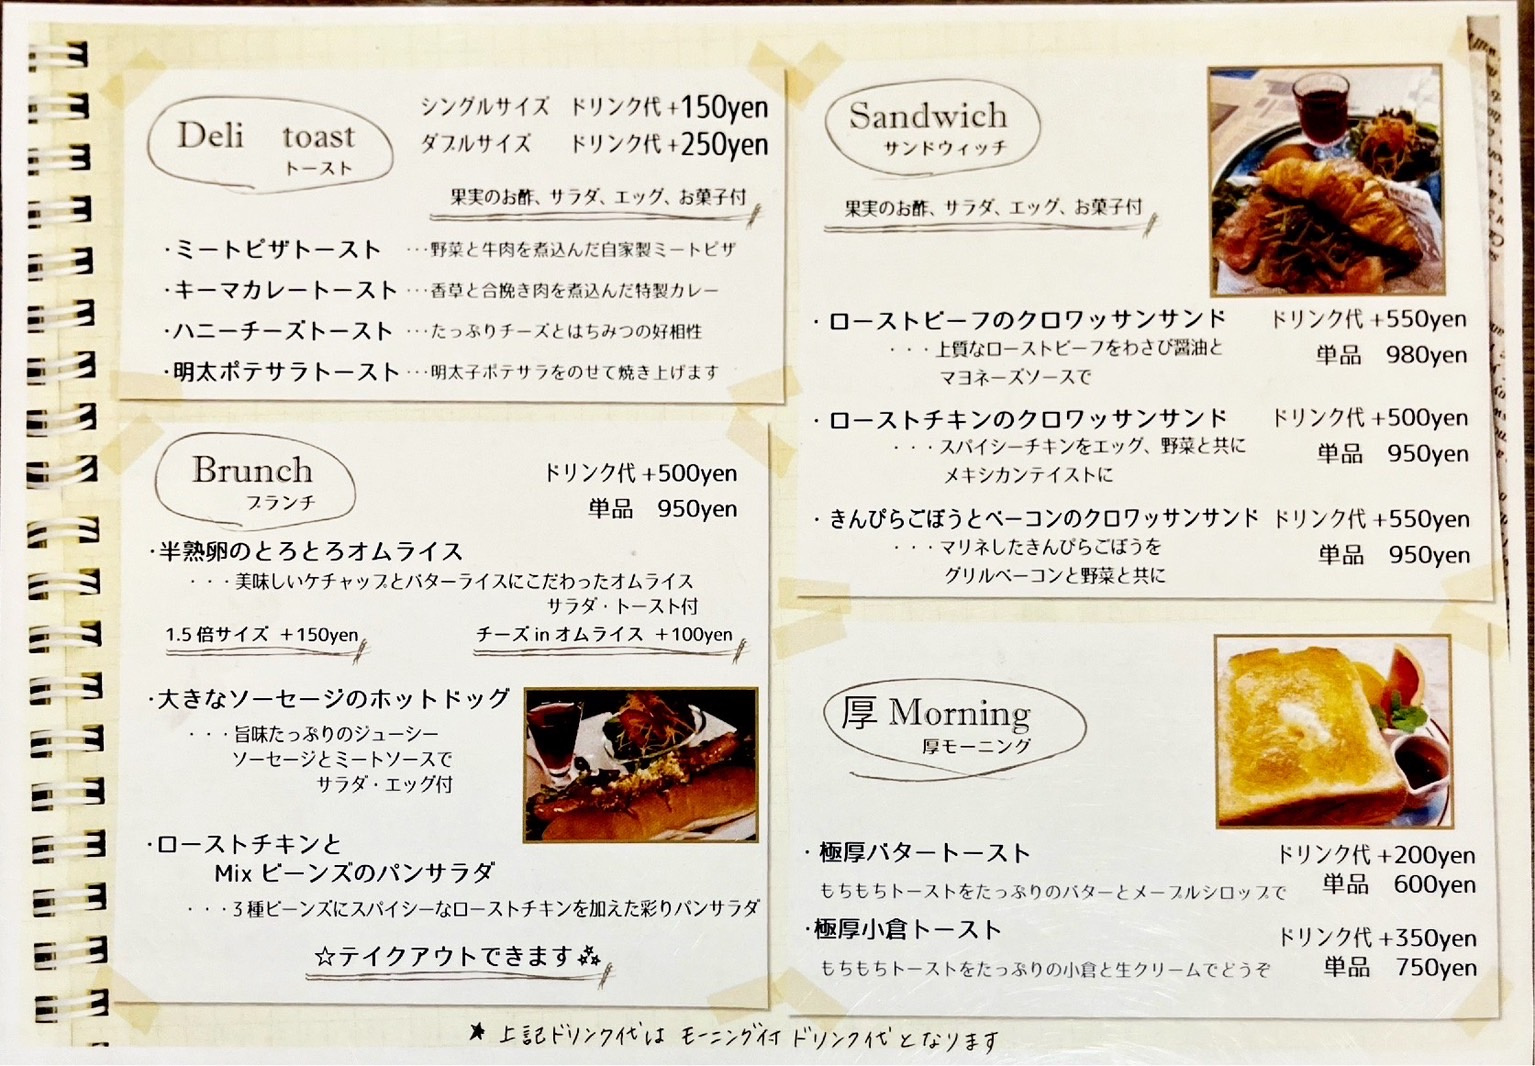 Deli toast
トースト
シングルサイズ ドリンク代+150yen
ダブルサイズ ドリンク代+250yen
果実のお酢、サラダ、エッグ、お菓子付
・ミートピザトースト ・・・野菜と牛肉を煮込んだ自家製ミートピザ
・キーマカレートースト ・・・香草と合挽き肉を煮込んだ特製カレー
・ハニーチーズトースト ・・・たっぷりチーズとはちみつの好相性
・明太ポテサラトースト ・・・明太子ポテサラをのせて焼き上げます
Brunch
ブランチ
ドリンク代+500yen
単品 950yen
・半熟卵のとろとろオムライス
・・・美味しいケチャップとバターライスにこだわったオムライス
サラダ・トースト付
1.5倍サイズ +150yen
チーズ in オムライス +100yen
・大きなソーセージのホットドッグ
・・・旨味たっぷりのジューシー
ソーセージとミートソースで
サラダ・エッグ付
・ローストチキンと
Mix ビーンズのパンサラダ
・・・3種ビーンズにスパイシーなローストチキンを加えた彩りパンサラダ
☆テイクアウトできます
Sandwich
サンドウィッチ
果実のお酢、サラダ、エッグ、お菓子付
・ローストビーフのクロワッサンサンド ドリンク代+550yen
・・・上質なローストビーフをわさび醤油と
マヨネーズソースで
単品 980yen
・ローストチキンのクロワッサンサンド ドリンク代+500yen
・・・スパイシーチキンをエッグ、野菜と共に
メキシカンテイストに
単品 950yen
・きんぴらごぼうとベーコンのクロワッサンサンド ドリンク代+550yen
・・・マリネしたきんぴらごぼうを
グリルベーコンと野菜と共に
単品 950yen
厚 Morning
厚モーニング
・極厚バタートースト ドリンク代+200yen
もちもちトーストをたっぷりのバターとメープルシロップで
単品 600yen
・極厚小倉トースト ドリンク代+350yen
もちもちトーストをたっぷりの小倉と生クリームでどうぞ
単品 750yen
★ 上記ドリンク代は モーニング付 ドリンク代となります